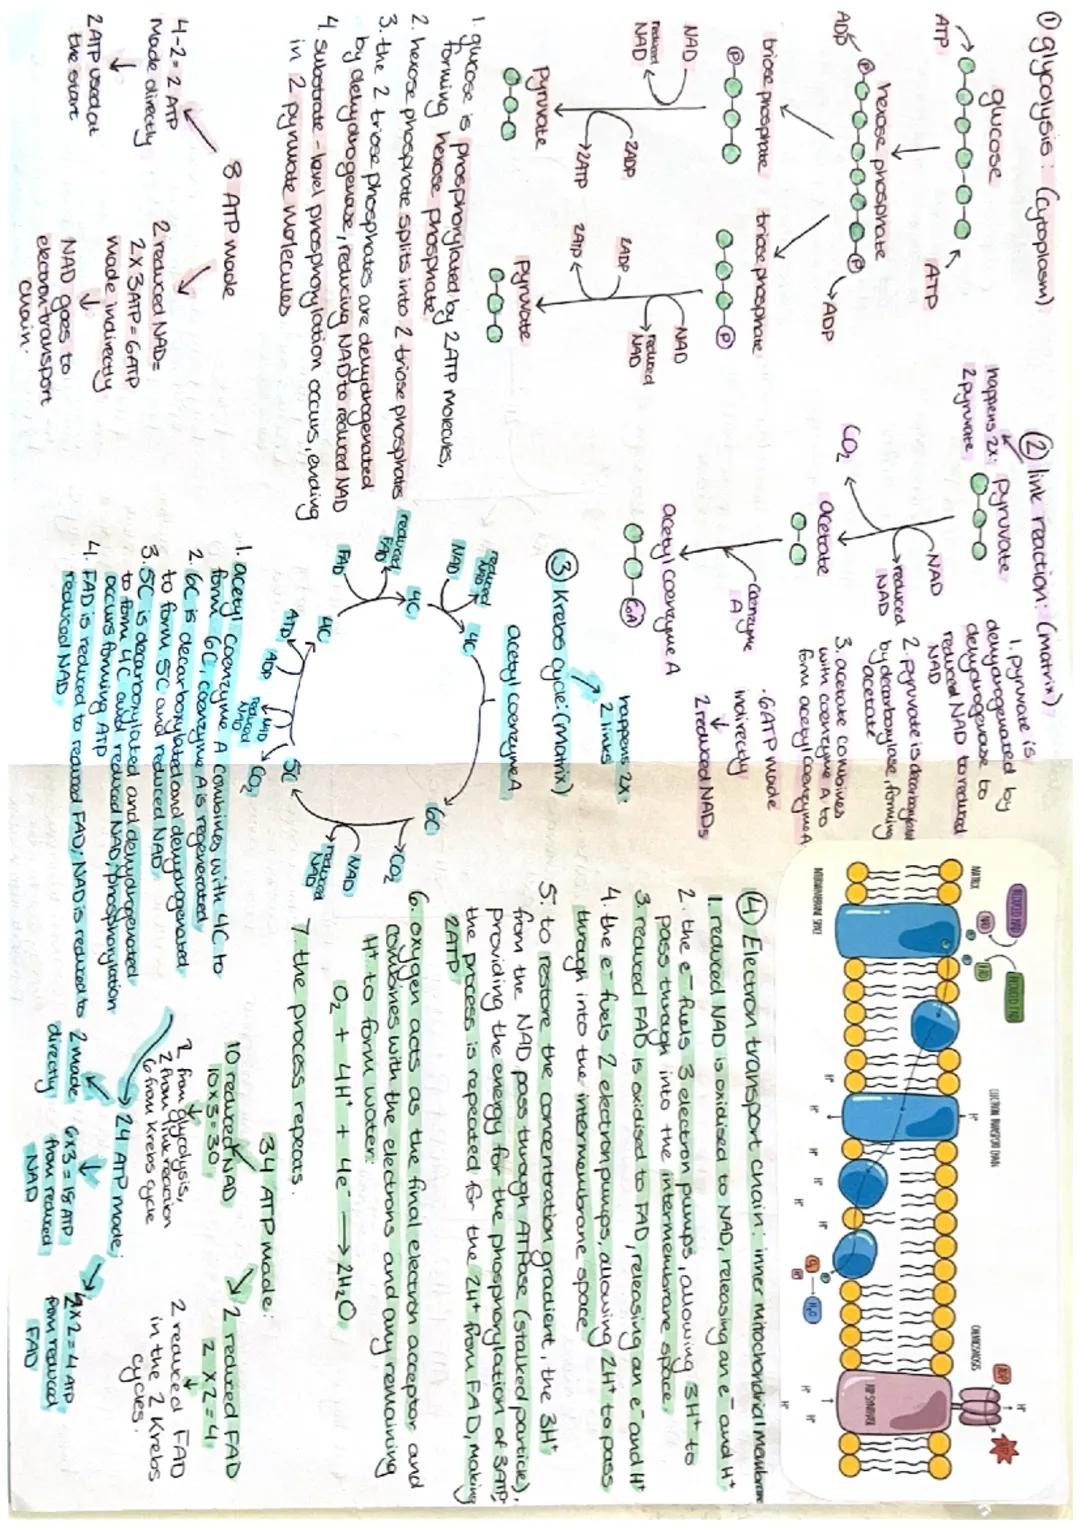 ① glycolysis: (cytoplasm)
glucose
ATP
ATP
hexose phosphate
ADP
P
P
ADP
triose phosphate
triose phosphate
P
P
NAD
reduced NAD
2ADP
2ATP
NAD
reduced NAD
2ADP
2ATP
Pyruvate
Pyruvate
1. glucose is phosphorylated by 2ATP molecules,
forming hexose phosphate
2. hexose phosphate splits into 2 triose phosphates
3. the 2 triose phosphates are dehydrogenated
by dehydrogenase, reducing NAD to reduced NAD
4. substrate-level phosphorylation occurs, ending
in 2 pyruvate molecules
8 ATP made
4-2=2 ATP
made directly
2ATP used at
the start
2 reduced NAD=
2x3ATP=6ATP
made indirectly
NAD goes to
electron transport
chain.
② link reaction: (matrix)
happens 2x:
2 pyruvate
Pyruvate
NAD
reduced
NAD
CO₂
acetate
coenzyme
A
acetyl coenzyme A
CoA
1. pyruvate is
dehydrogenated by
dehydrogenase to
reduced NAD to reduced
NAD
2. pyruvate is decarboxylated
by decarboxylase, forming
acetate
3. acetate combines
with coenzyme A to
form acetyl coenzyme A
.6ATP made
indirectly
2 reduced NADs
③ Krebs cycle: (matrix)
happens 2x:
2 links
acetyl coenzyme A
4C
6C
CO₂
NAD
reduced
NAD
5C
CO₂
NAD
reduced
NAD
ADP
ATP
4C
FAD
reduced
FAD
4C
NAD
reduced
NAD
1. acetyl coenzyme A combines with 4C to
form 6C, coenzyme A is regenerated
2. 6C is decarboxylated and dehydrogenated
to form 5C and reduced NAD
3. 5C is decarboxylated and dehydrogenated
to form 4C and reduced NAD, phosphorylation
occurs forming ATP
4. FAD is reduced to reduced FAD, NAD is reduced to
reduced NAD
24 ATP made:
2 made
directly
6x3=18 ATP
from reduced
NAD
2x2=4 ATP
from reduced
FAD
MATRIX
INTERMEMBRANE SPACE
REDUCED NAD
NAD
REDUCED FAD
FAD
ELECTRON TRANSPORT CHAIN
CHEMIOSMOSIS
H⁺
H⁺
H⁺
H⁺
H⁺
H⁺
O₂
H⁺
H₂O
ATP SYNTHASE
ADP
ATP
H⁺
H⁺
H⁺
H⁺
④ Electron transport chain: inner mitochondrial membrane
1. reduced NAD is oxidised to NAD, releasing an e⁻ and H⁺
2. the e⁻ fuels 3 electron pumps, allowing 3H⁺ to
pass through into the intermembrane space
3. reduced FAD is oxidised to FAD, releasing an e⁻ and H⁺
4. the e⁻ fuels 2 electron pumps, allowing 2H⁺ to pass
through into the intermembrane space
5. to restore the concentration gradient, the 3H⁺
from the NAD pass through ATPase (stalked particle),
providing the energy for the phosphorylation of 3ATP.
the process is repeated for the 2H⁺ from FAD, making
2ATP
6. oxygen acts as the final electron acceptor and
combines with the electrons and any remaining
H⁺ to form water:
O₂ + 4H⁺ + 4e⁻ → 2H₂O
7. the process repeats.
34 ATP made:
10 reduced NAD
10x3=30
2 from glycolysis,
2 from link reaction
6 from Krebs cycle
2 reduced FAD
2x2=4
2 reduced FAD
in the 2 Krebs
cycles.